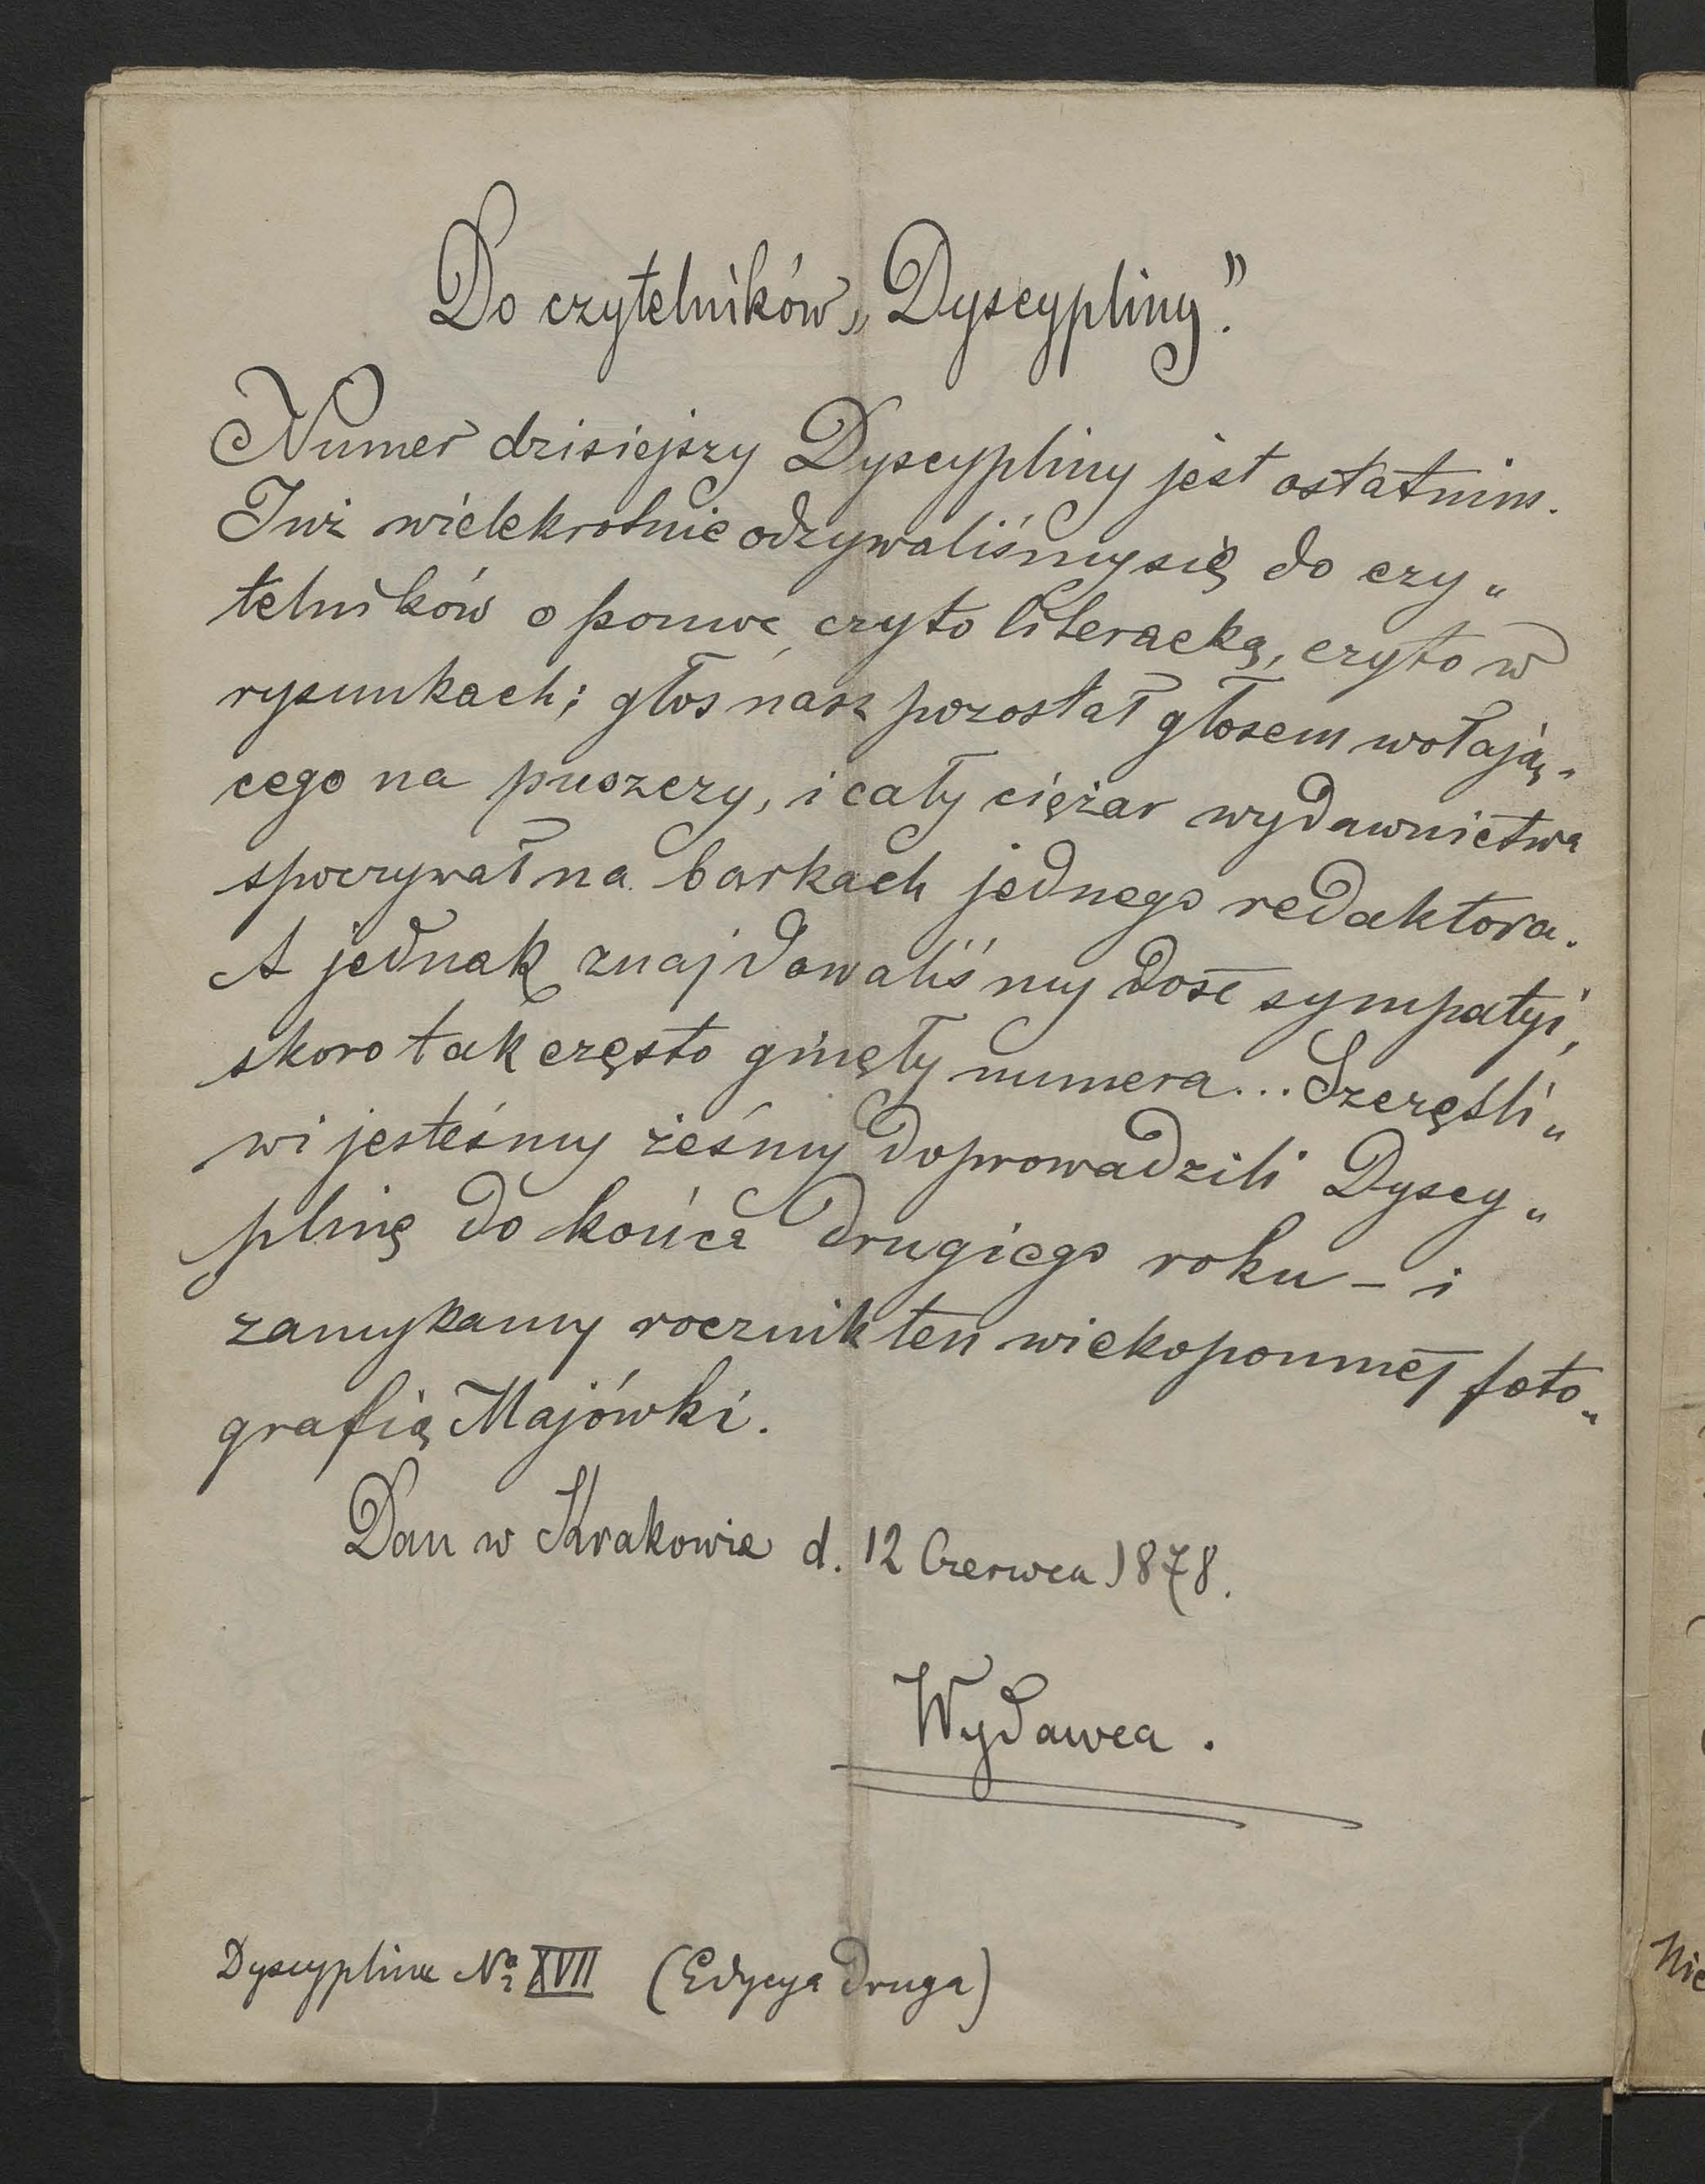 Do czytelników „Dyscypliny."
Numer dzisiejszy Dyscypliny jest ostatnim.
Już wielekrotnie odzywaliśmy się do czy„
telników o pomoc czyto literacką, czyto w
rysunkach; głos nasz pozostał głosem wołają„
cego na puszczy, i cały ciężar wydawnictwa
spoczywał na barkach jednego redaktora.
A jednak znajdowaliśmy dość sympatyi,
skoro tak często ginęły numera... Szczęśli„
wi jesteśmy żeśmy doprowadzili Dyscy„
plinę do końca drugiego roku – i
zamykamy rocznik ten wiekopomnéj foto„
grafią Majówki.
Dan w Krakowie d. 12 Czerwca 1878.
Wydawca.
Dyscyplina No XVII (Edycya druga)
Nie